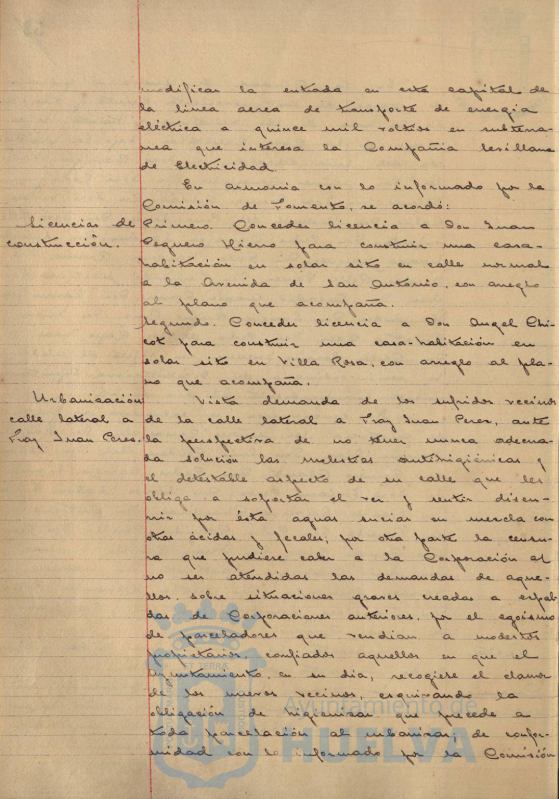 modificar la entrada en esta capital de
la linea aerea de transporte de energia
eléctrica a quince mil voltios en subterra-
nea que interesa la Compañia Sevillana
de Electricidad.
En armonia con lo informado por la
Comisión de Fomento, se acordó:
Licencias de
construcción.
Primero. Conceder licencia a Don Juan
Peguero Hierro para construir una casa-
habitación en solar sito en calle normal
a la Avenida de San Antonio, con arreglo
al plano que acompaña.
Segundo. Conceder licencia a Don Angel Chi-
cot para construir una casa-habitación en
solar sito en Villa Rosa, con arreglo al pla-
no que acompaña.
Urbanización
calle lateral a
Fray Juan Perez.
Vista demanda de los sufridos vecinos
de la calle lateral a Fray Juan Perez, ante
la perspectiva de no tener nunca adecua-
da solución las molestias antihigiénicas y
el detestable aspecto de su calle que les
obliga a soportar el ver y sentir discu-
rrir por ésta aguas sucias en mezcla con
otras ácidas y fecales; por otra parte la censu-
ra que pudiere caber a la Corporación al
no ser atendidas las demandas de aque-
llos, sobre situaciones graves creadas a espal-
das de Corporaciones anteriores, por el egoismo
de parceladores que vendian a modestos
propietarios confiados aquellos en que el
Ayuntamiento, en su dia, recogiese el clamor
de los nuevos vecinos, esquivando la
obligación de higienizar que precede a
toda parcelación al urbanizar, de confor-
midad con lo informado por la Comisión
Ayuntamiento de
HUELVA